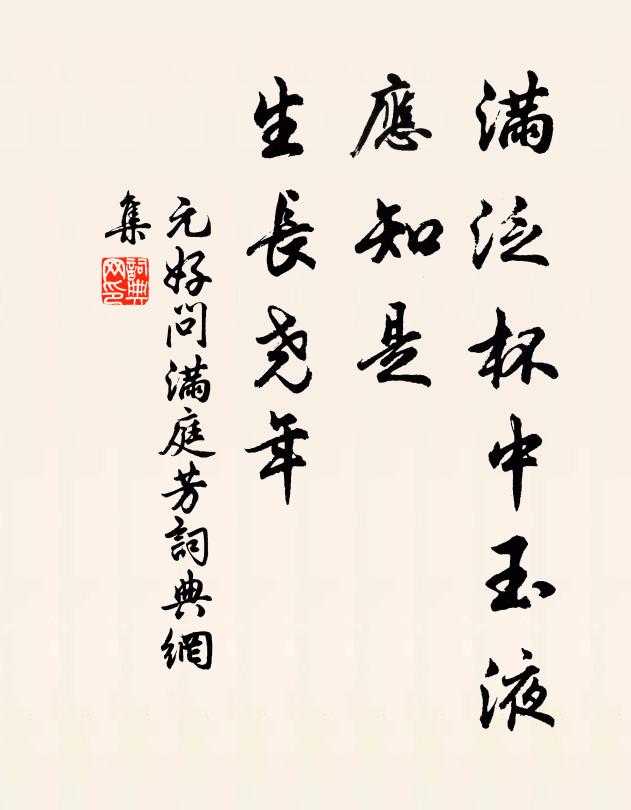 滿泛杯中玉液
應知是
生長尧年
元好问滿庭芳詞典網
集
詞典
网印